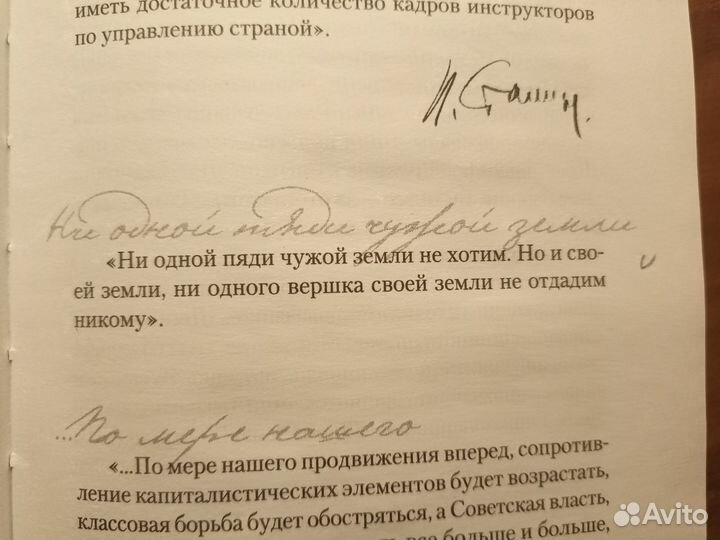 иметь достаточное количество кадров инструкторов
по управлению страной».
И. Сталин.
Ни одной пяди чужой земли
«Ни одной пяди чужой земли не хотим. Но и сво-
ей земли, ни одного вершка своей земли не отдадим
никому».
...По мере нашего
«...По мере нашего продвижения вперед, сопротив-
ление капиталистических элементов будет возрастать,
классовая борьба будет обостряться, а Советская власть,
все больше и больше,
Avito